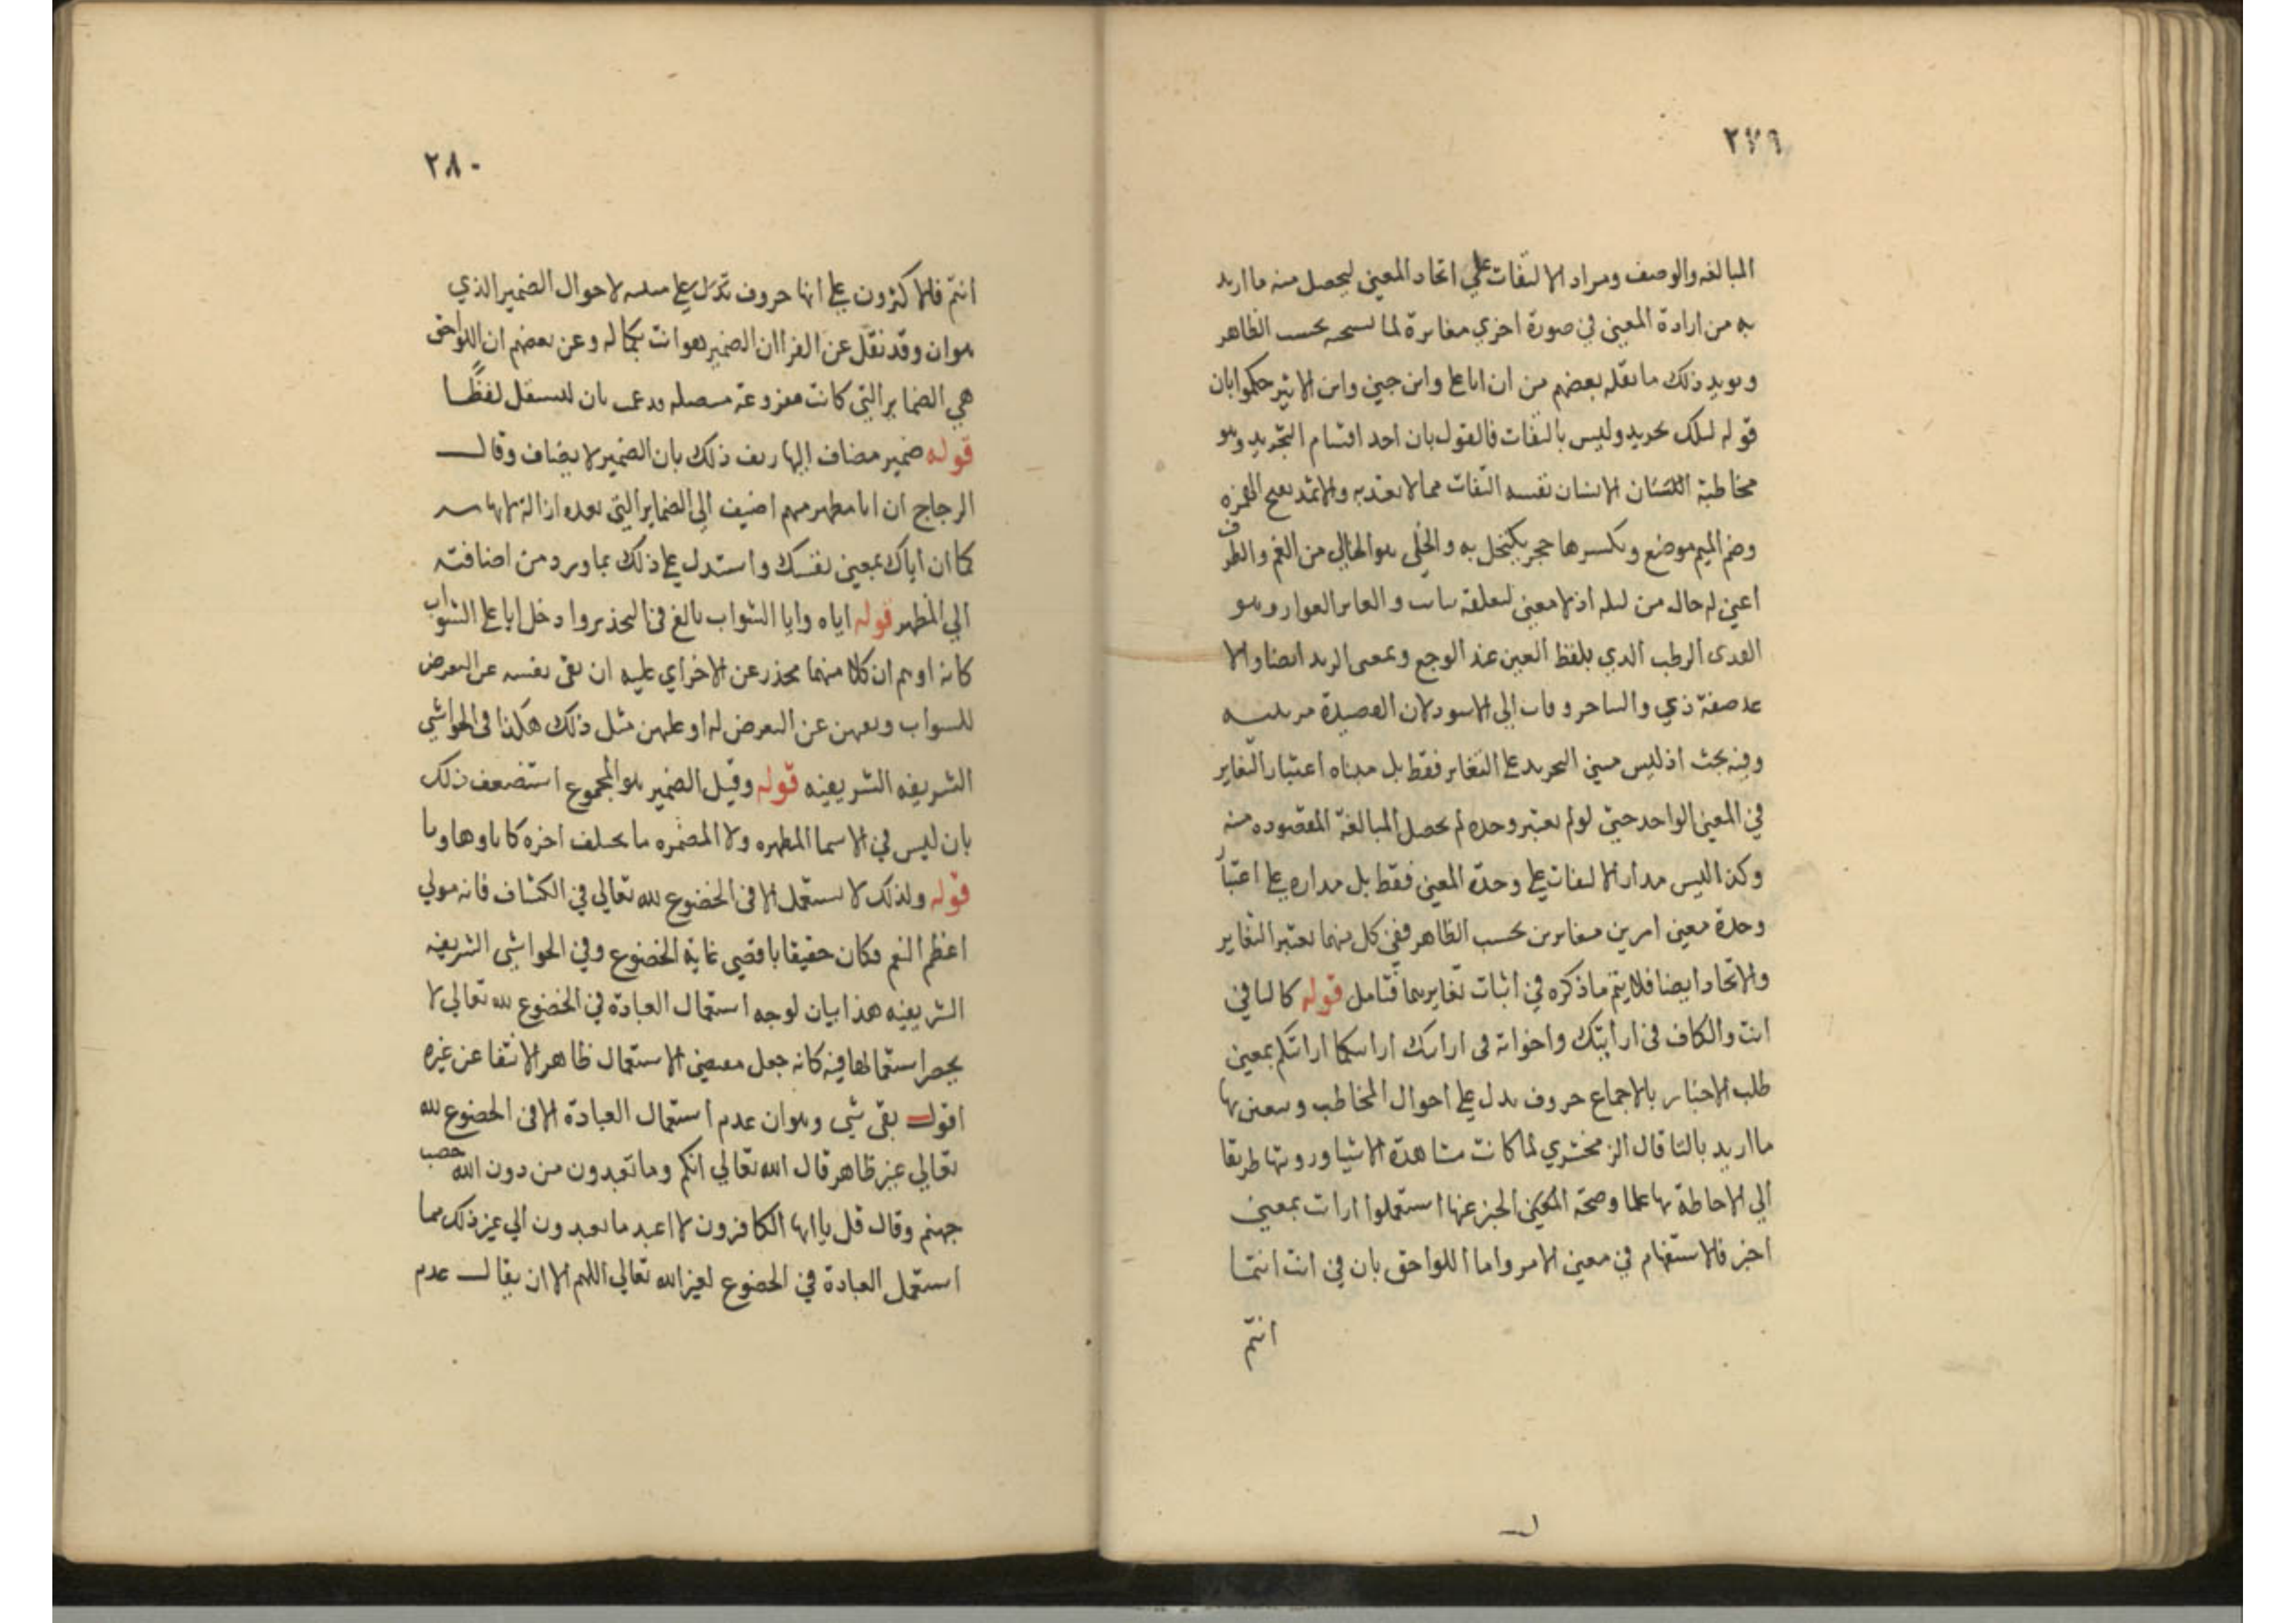 ٢٧٩
المبالغه والوصف ومراد الالتفات علي اتحاد المعني ليحصل منه ما اريد
به من ارادة المعني في صورة اخري مغايرة لما بحسب الظاهر
ويويد ذلك ما نقله بعضهم من ان ابا علي وابن جني وابن الاثير حكموا بان
قوله ليلك تجريد وليس بالتفات فالقول بان احد اقسام التجريد وهو
مخاطبة الانسان نفسه التفات مما لا يعتد به والاثمد بفتح الهمزه
وضم الميم موضع وبكسرها حجر يكتحل به والخلي هو الخالي من الغم والظرف
اعني له حال من ليله اذ لا معني لتعلقه والعاير العوار وهو
القدى الرطب الذي يلفظ العين عند الوجع وبمعنى الرمد ايضا والا
صفة ذي الي الاسود لان القصيدة مرثية
وفيه بحث اذ ليس مبني التجريد علي التغاير فقط بل مبناه اعتبار التغاير
في المعني الواحد حتي لو لم يعتبر وحده لم يحصل المبالغة المقصوده منه
وكذا ليس مدار الالتفات علي وحدة المعني فقط بل مداره علي اعتبار
وحدة معني امرين مغايرين بحسب الظاهر ففي كل منهما يعتبر التغاير
والاتحاد ايضا فلا يتم ما ذكره في اثبات تغايرهما فتامل قوله كالتا في
انت والكاف في ارايتك واخواته في ارايتك ارايتكما ارايتكم بمعني
طلب الاخبار بالاجماع حروف تدل علي احوال المخاطب ويتعين بها
ما اريد بالتا قال الزمخشري لما كانت مشاهدة الاشيا ورويتها طريقا
الي الاحاطة بها علما وصحة الخبر عنها استعملوا ارايت بمعني
اخبر فالاستفهام في معني الامر واما اللواحق بان في انت انتما
انتم
٢٨٠
انتم فالاكثرون علي انها حروف تدل علي لاحوال الضمير الذي
هو ان وقد نقل عن الفرا ان الضمير هو انت بكماله وعن بعضهم ان اللواحق
هي الضماير التي كانت مرفوعة متصله بان لتستقل لفظًا
قوله ضمير مضاف اليها زيف ذلك بان الضمير لا يضاف وقال
الزجاج ان ايا مظهر مبهم اضيف الي الضماير التي بعده ازالة لابهامه
كما ان اياك بمعني نفسك واستدل علي ذلك بما ورد من اضافته
الي المظهر قوله اياه وايا الشواب بالغ في التحذير وادخل ايا علي الشواب
كانه اوهم ان كلا منهما محذر عن الاخر اي عليه ان يقي نفسه عن التعرض
للشواب ويقيهن عن التعرض له او عليهن مثل ذلك هكذا في الحواشي
الشريفه الشريفيه قوله وقيل الضمير هو المجموع استضعف ذلك
بان ليس في الاسما المظهره ولا المضمره ما يختلف اخره كافا وها ويا
قوله ولذلك لا يستعمل الا في الخضوع لله تعالي في الكشاف فانه مولي
اعظم النعم وكان حقيقا باقصي غاية الخضوع وفي الحواشي الشريفه
الشريفيه هذا بيان لوجه استعمال العبادة في الخضوع لله تعالي لا
يحصر استعمالها فيه كانه جعل مقتضي الاستعمال ظاهر الانتفا عن غيره
اقول بقي شي وهو ان عدم استعمال العبادة الا في الخضوع لله
تعالي غير ظاهر قال الله تعالي انكم وما تعبدون من دون الله حصب
جهنم وقال قل يا ايها الكافرون لا اعبد ما تعبدون الي غير ذلك مما
استعمل العبادة في الخضوع لغير الله تعالي اللهم الا ان يقال عدم